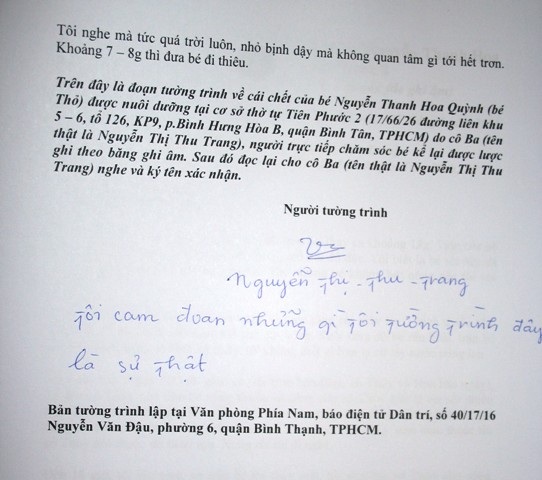 Tôi nghe mà tức quá trời luôn, nhỏ bịnh dậy mà không quan tâm gì tới hết trơn.
Khoảng 7 – 8g thì đưa bé đi thiêu.
Trên đây là đoạn tường trình về cái chết của bé Nguyễn Thanh Hoa Quỳnh (bé
Thỏ) được nuôi dưỡng tại cơ sở thờ tự Tiên Phước 2 (17/66/26 đường liên khu
5 – 6, tổ 126, KP9, p.Bình Hưng Hòa B, quận Bình Tân, TPHCM) do cô Ba (tên
thật là Nguyễn Thị Thu Trang), người trực tiếp chăm sóc bé kể lại được lược
ghi theo băng ghi âm. Sau đó đọc lại cho cô Ba (tên thật là Nguyễn Thị Thu
Trang) nghe và ký tên xác nhận.
Người tường trình
Nguyễn Thị - Thu - Trang
Tôi cam đoan những gì Tôi Tường Trình đây
là sự thật
Bản tường trình lập tại Văn phòng Phía Nam, báo điện tử Dân trí, số 40/17/16
Nguyễn Văn Đậu, phường 6, quận Bình Thạnh, TPHCM.